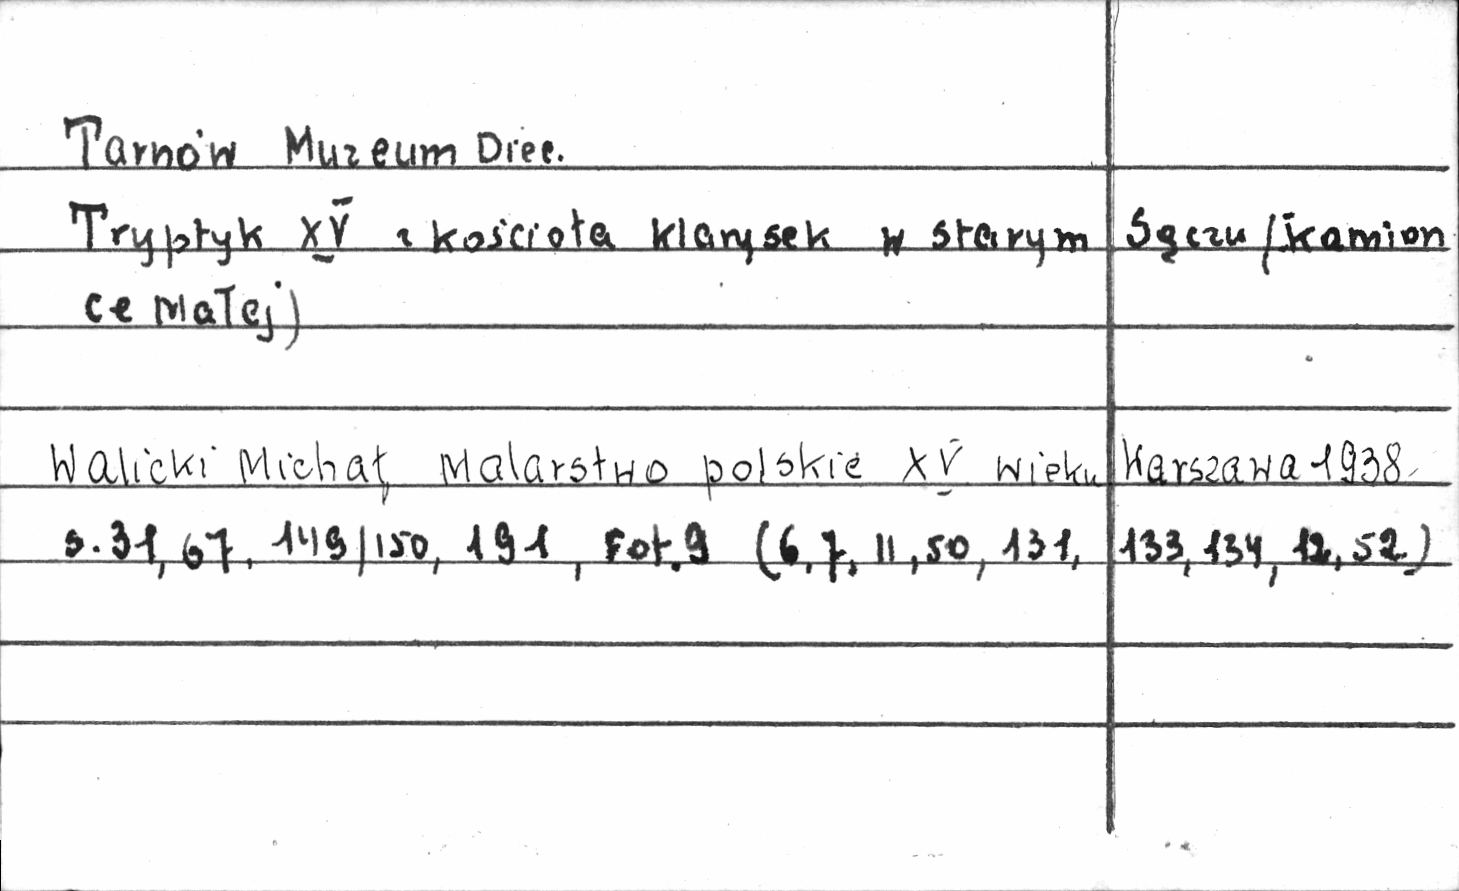 Tarnów Muzeum Diec.
Tryptyk XV z kościoła klarysek w starym Sączu (kamion
ce Małej)
Walicki Michał, Malarstwo polskie XV wieku Warszawa 1938
s. 31, 67, 149/150, 191, Fot. 9 (6, 7, 11, 50, 131, 133, 134, 12, 52)